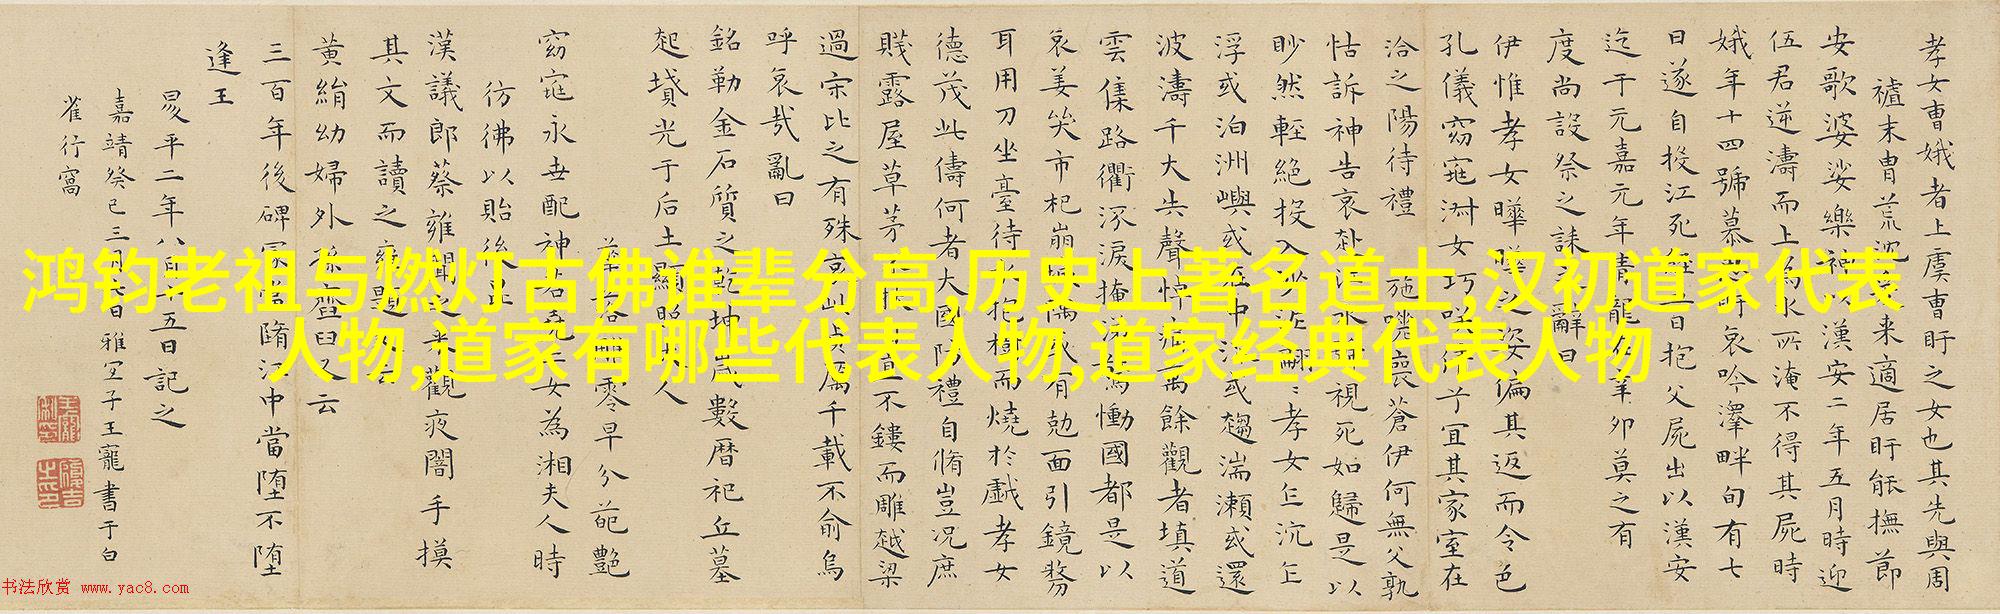 鸿钧老祖与燃灯古佛谁辈分高,历史上著名道士,汉初道家代表
人物,道家有哪些代表人物,道家经典代表人物
孝女曹娥者上虞曹盱之女也其先與周
末胄荒来適居盱能撫節
安歌婆娑樂神以漢安二年五月時迎
伍君逆濤而上為水所淹不得其屍時
娥年十四號慕思盱哀吟澤畔旬有七
日遂自投江死經五日抱父屍出以漢安
迄于元嘉元年青龍在辛卯莫之有
度尚設祭之誄之辭曰
伊惟孝女曄曄之姿偏其返而令色
孔儀窈窕淑女巧咲倩兮宜其家室在
洽之陽待禮未施嗟喪蒼伊何無父孰
怙訴神告哀赴江永號視死如歸是以
眇然輕絕投入沙泥翩〻孝女乍沉乍
浮或泊洲嶼或在中流或趨湍瀨或還
波濤千夫失聲悼痛萬餘觀者填道
雲集路衢泝淚掩涕驚慟國都是以
哀姜哭市杞崩城隅或有勀面引鏡剺
耳用刀坐臺待水抱樹而燒於戱孝女
德茂此儔何者大國防禮自脩豈况庶
賤露屋草茅不扶自直不鏤而雕越梁
過宋比之有殊哀此貞厲千載不渝烏
呼哀哉亂曰
銘勒金石質之乾坤歲數曆祀丘墓
起墳光于后土顯照夫人
華落飄零早分葩艷
窈窕永世配神若堯二女為湘夫人時
彷彿以貽後昆
漢議郎蔡雍聞之来觀夜闇手摸
其文而讀之雍題文云
黄絹幼婦外孫齑臼又云
三百年後碑冢當墮江中當堕不堕
逢王
昇平二年八月十五日記之
嘉靖癸巳三月六日雅宜子王寵書于白
雀行窩
书法欣赏 www.yac8.com